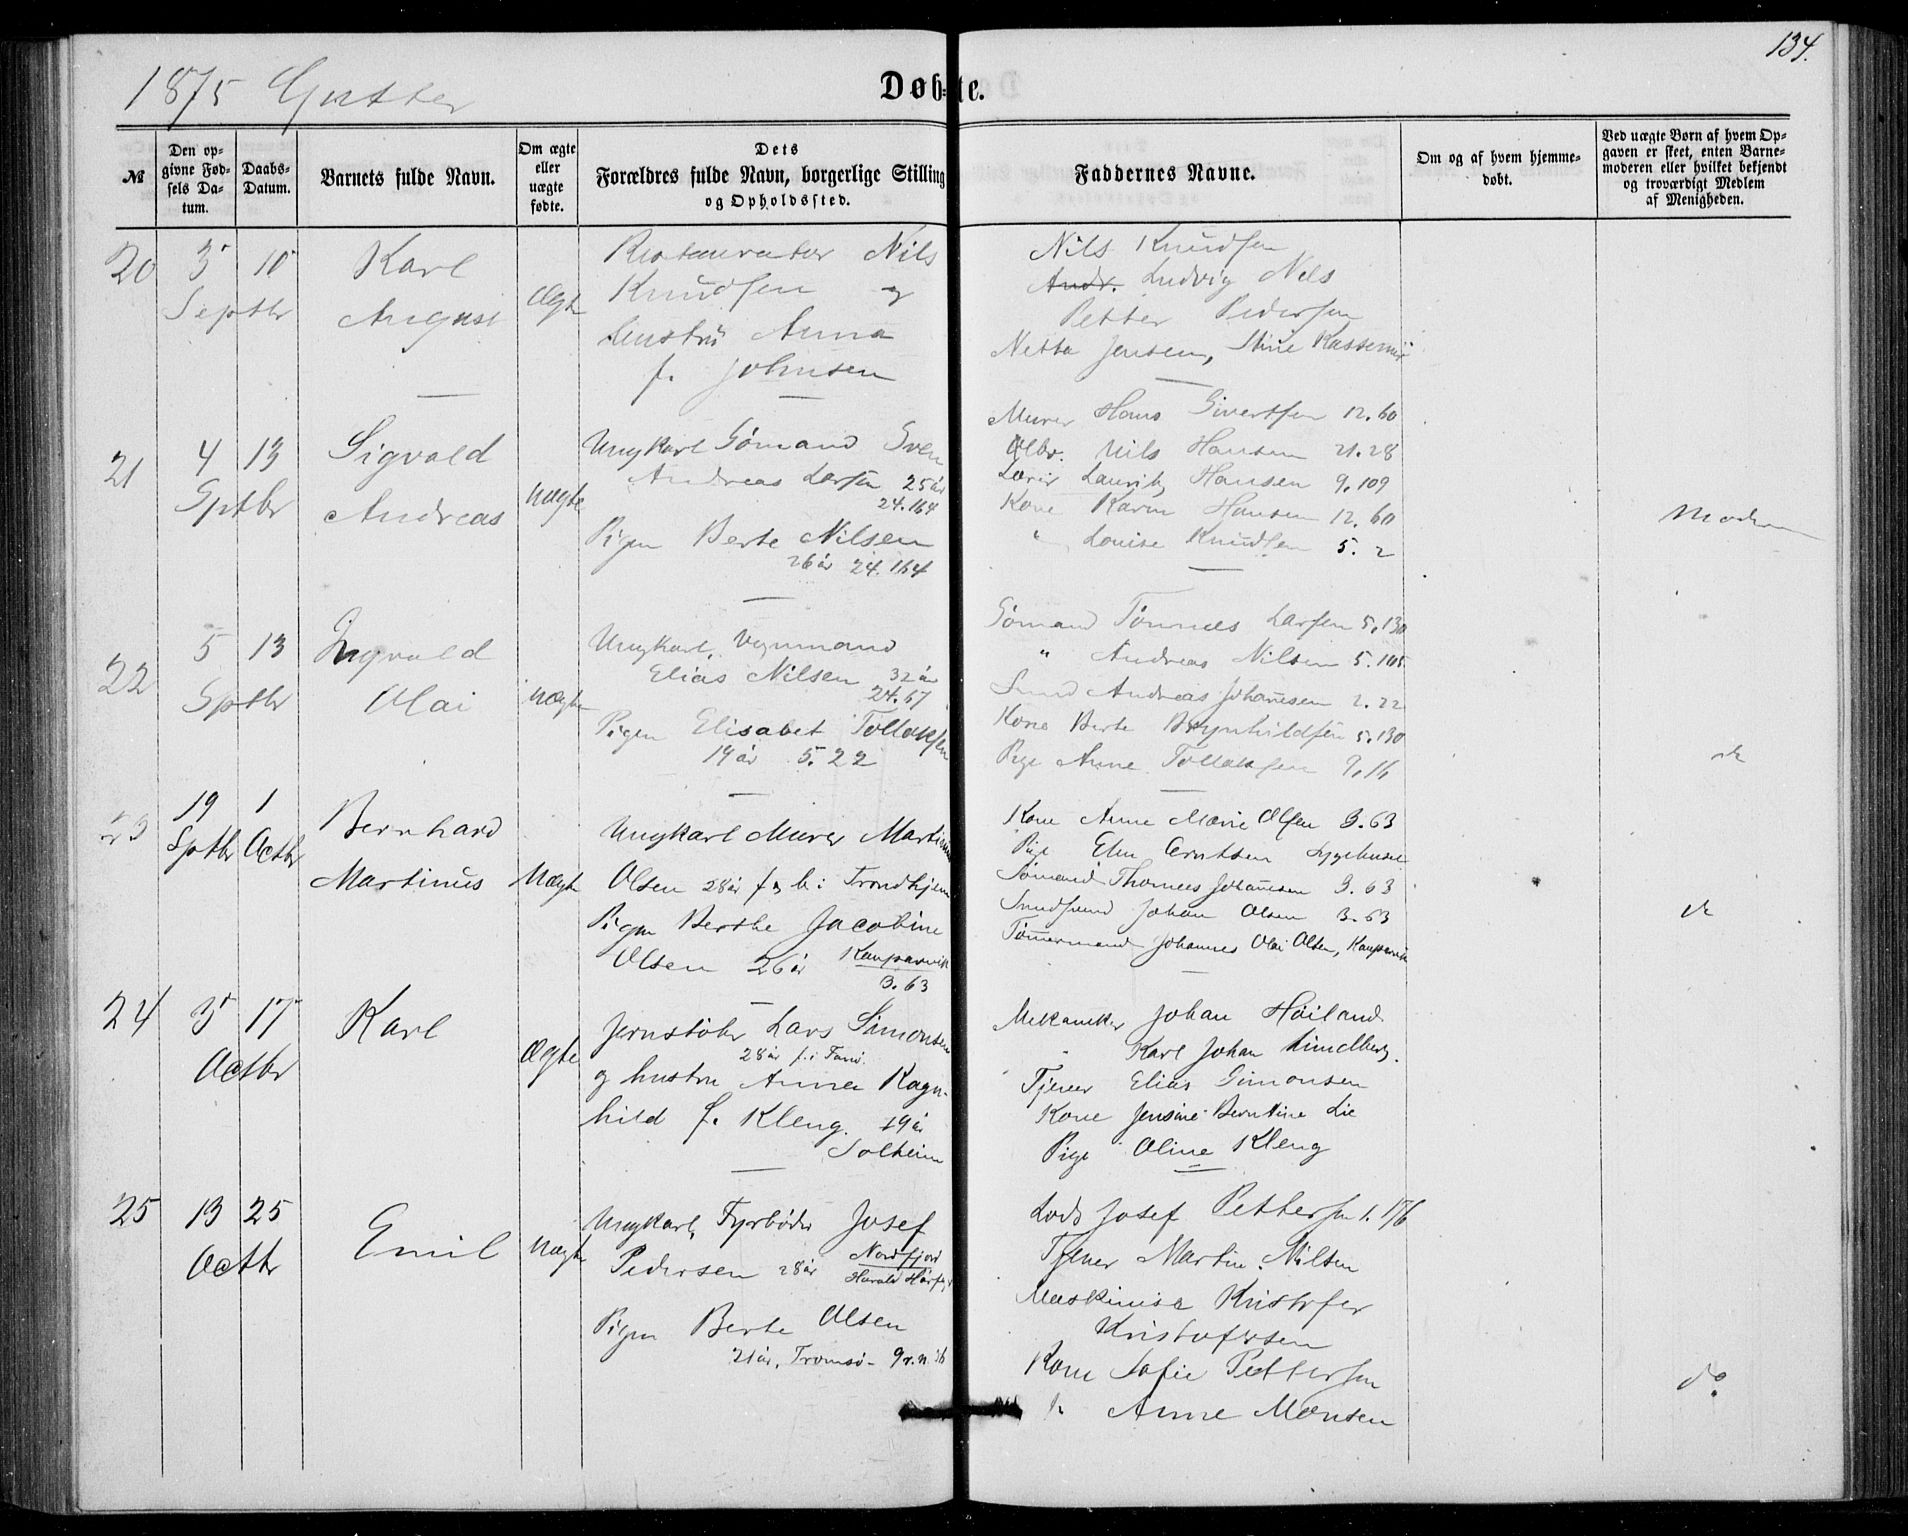 134.
1875 Gutter
Døbte.
№
Den opgivne Fødsels Datum.
Daabs-Datum.
Barnets fulde Navn.
Om ægte eller uægte fødte.
Dets Forældres fulde Navn, borgerlige Stilling og Opholdssted.
Faddernes Navne.
Om og af hvem hjemmedøbt.
Ved uægte Børn af hvem Opgaven er skeet, enten Barnemoderen eller hvilket bekjendt og troværdigt Medlem af Menigheden.
20
3 Septbr
10
Karl
August
Ægte
Restauratør Nils
Knudsen og
hustru Anna
f. Johnsen
Nils Knudsen
Andr. Ludvig Nils
Petter Pedersen
Netta Jensen, Stine
21
4 Sptbr
13
Sigvald
Andreas
Uægte
Ungkarl Sømand Sven
Andreas Larsen 25 år
24.164
Pigen Berte Nilsen
26 år 24.164
Murer Hans Sivertsen 12.60
Nils Hansen 21.28
Laurits Hansen 9.109
Kone Karen Hansen 12.60
" Louise Knudsen 5.2
Moderen
22
5 Sptbr
13
Ingvald
Olai
Uægte
Ungkarl, Vognmand
Elias Nilsen 32 år
24.67
Pigen Elisabet Tollaksen
19 år 5.22
Sømand Tønnes Larsen 5.130
" Andreas Nilsen 5.105
Smed Andreas Johannesen 2.22
Kone Berte Brynhildsen 5.130
Pige Anne Tollaksen 7.16
do
23
19 Sptbr
1 Octbr
Bernhard
Martinus
Uægte
Ungkarl Murer Martinus
Olsen 28 år f. og b. i Trondhjem
Pigen Berthe Jacobine
Olsen 26 år Kampanvik
3.63
Kone Anne Marie Olsen 3.63
Pige Elen Arntsen Sygehuset
Sømand Thomas Johannesen 3.63
Johan Olsen 3.63
Tømmermand Johannes Olai Olsen,
do
24
3 Octbr
17
Karl
Ægte
Jernstøber Lars Simonsen
28 år f. i Fanø.
og hustru Anna Ragn-
hild f. Kleng. 19 år
Solheim
Mekaniker Johan Høiland
" Karl Johan Lindberg.
Tjener Elias Simonsen
Kone Jensine Berntine Lie
Pige Oline Kleng
25
13 Octbr
25
Emil
Uægte
Ungkarl, Fyrbøder Josef
Pedersen 28 år Nordfjord
Harald Hårf.
Pigen Berte Olsen
21 år, Tromsø - 9 r. n. 36
Lods Josef Pettersen 1.176
Tjener Martin Nilsen
Maskinist Kristofer
Kristofersen
Kone Sofie Pettersen
" Anne Monsen
do